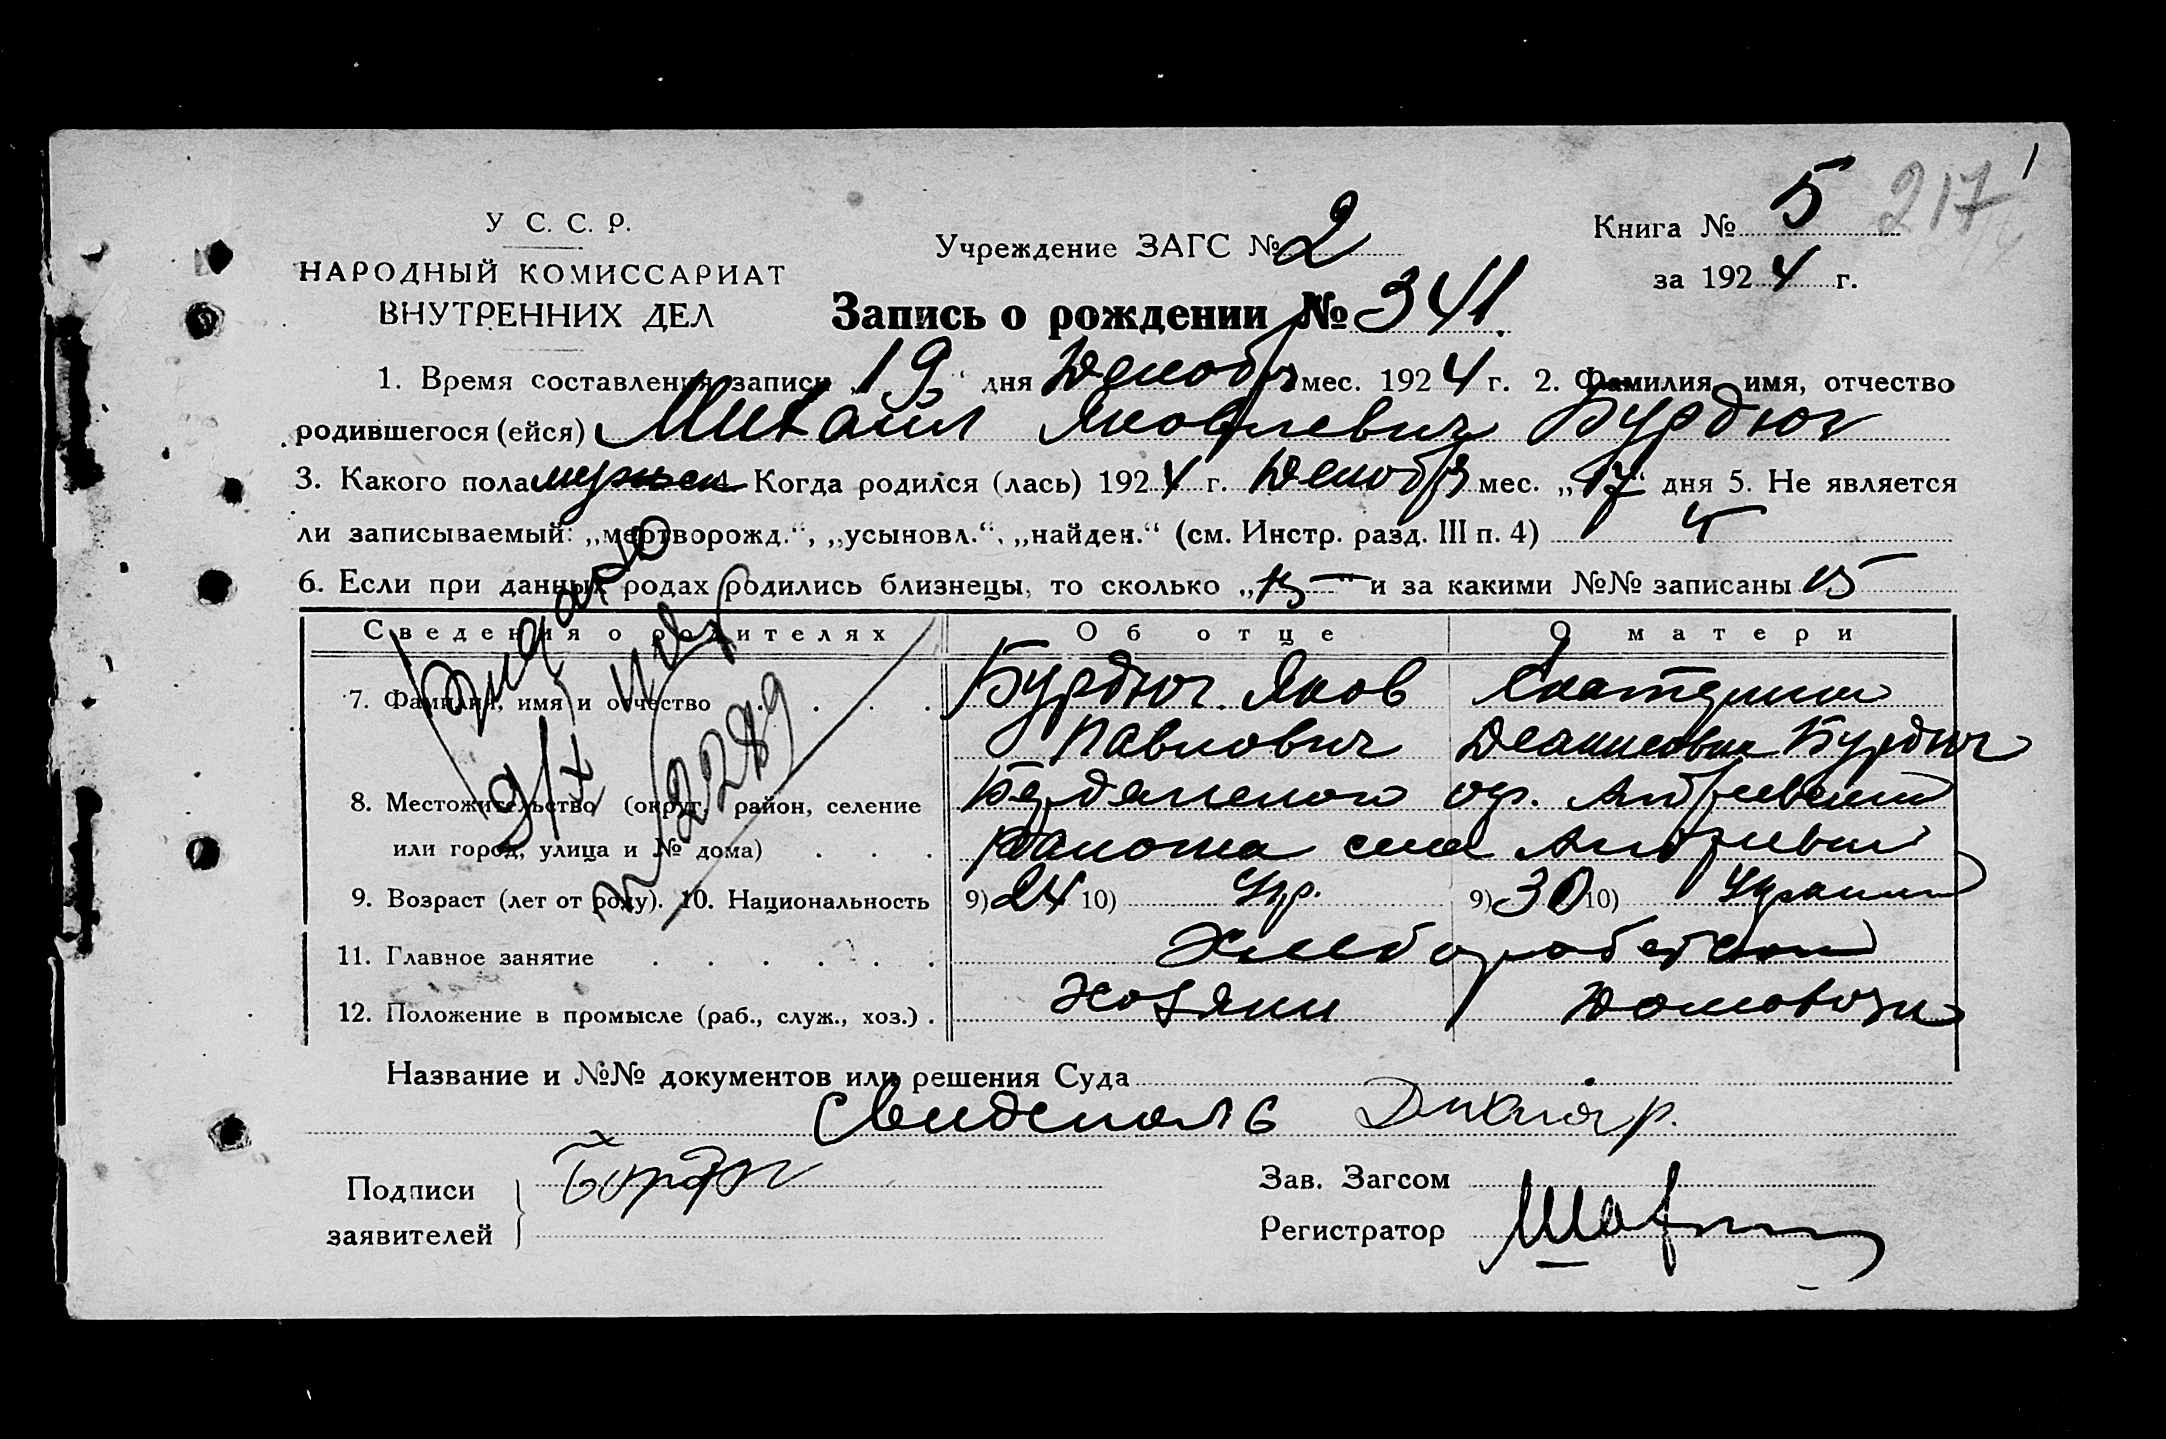 1
217
У С. С. Р.
НАРОДНЫЙ КОМИССАРИАТ
ВНУТРЕННИХ ДЕЛ
Учреждение ЗАГС № 2
Книга № 5
за 1924 г.
Запись о рождении № 341.
1. Время составления записи „19“ дня Декабр мес. 1924 г. 2. Фамилия, имя, отчество
родившегося (ейся) Михаил Яковлевич Бурдюг
3. Какого пола мужск 4. Когда родился (лась) 1924 г. Декабр мес. „17“ дня 5. Не является
ли записываемый: „мертворожд.“, „усыновл.“, „найден.“ (см. Инстр. разд. III п. 4)
6. Если при данных родах родились близнецы, то сколько „ “ и за какими №№ записаны
Сведения о родителях Об отце О матери
7. Фамилия, имя и отчество . . . Бурдюг Яков Екатерина
Павлович Бурдюг
8. Местожительство (округ, район, селение Бердянского окр. Андреевский
или город, улица и № дома) . . . района села Андреевки
9. Возраст (лет от роду). 10. Национальность 9) 24 10) Укр. 9) 30 10)
11. Главное занятие . . . . . .
12. Положение в промысле (раб., служ., хоз.) . хозяин
Название и №№ документов или решения Суда
Подписи
заявителей
Зав. Загсом
Регистратор